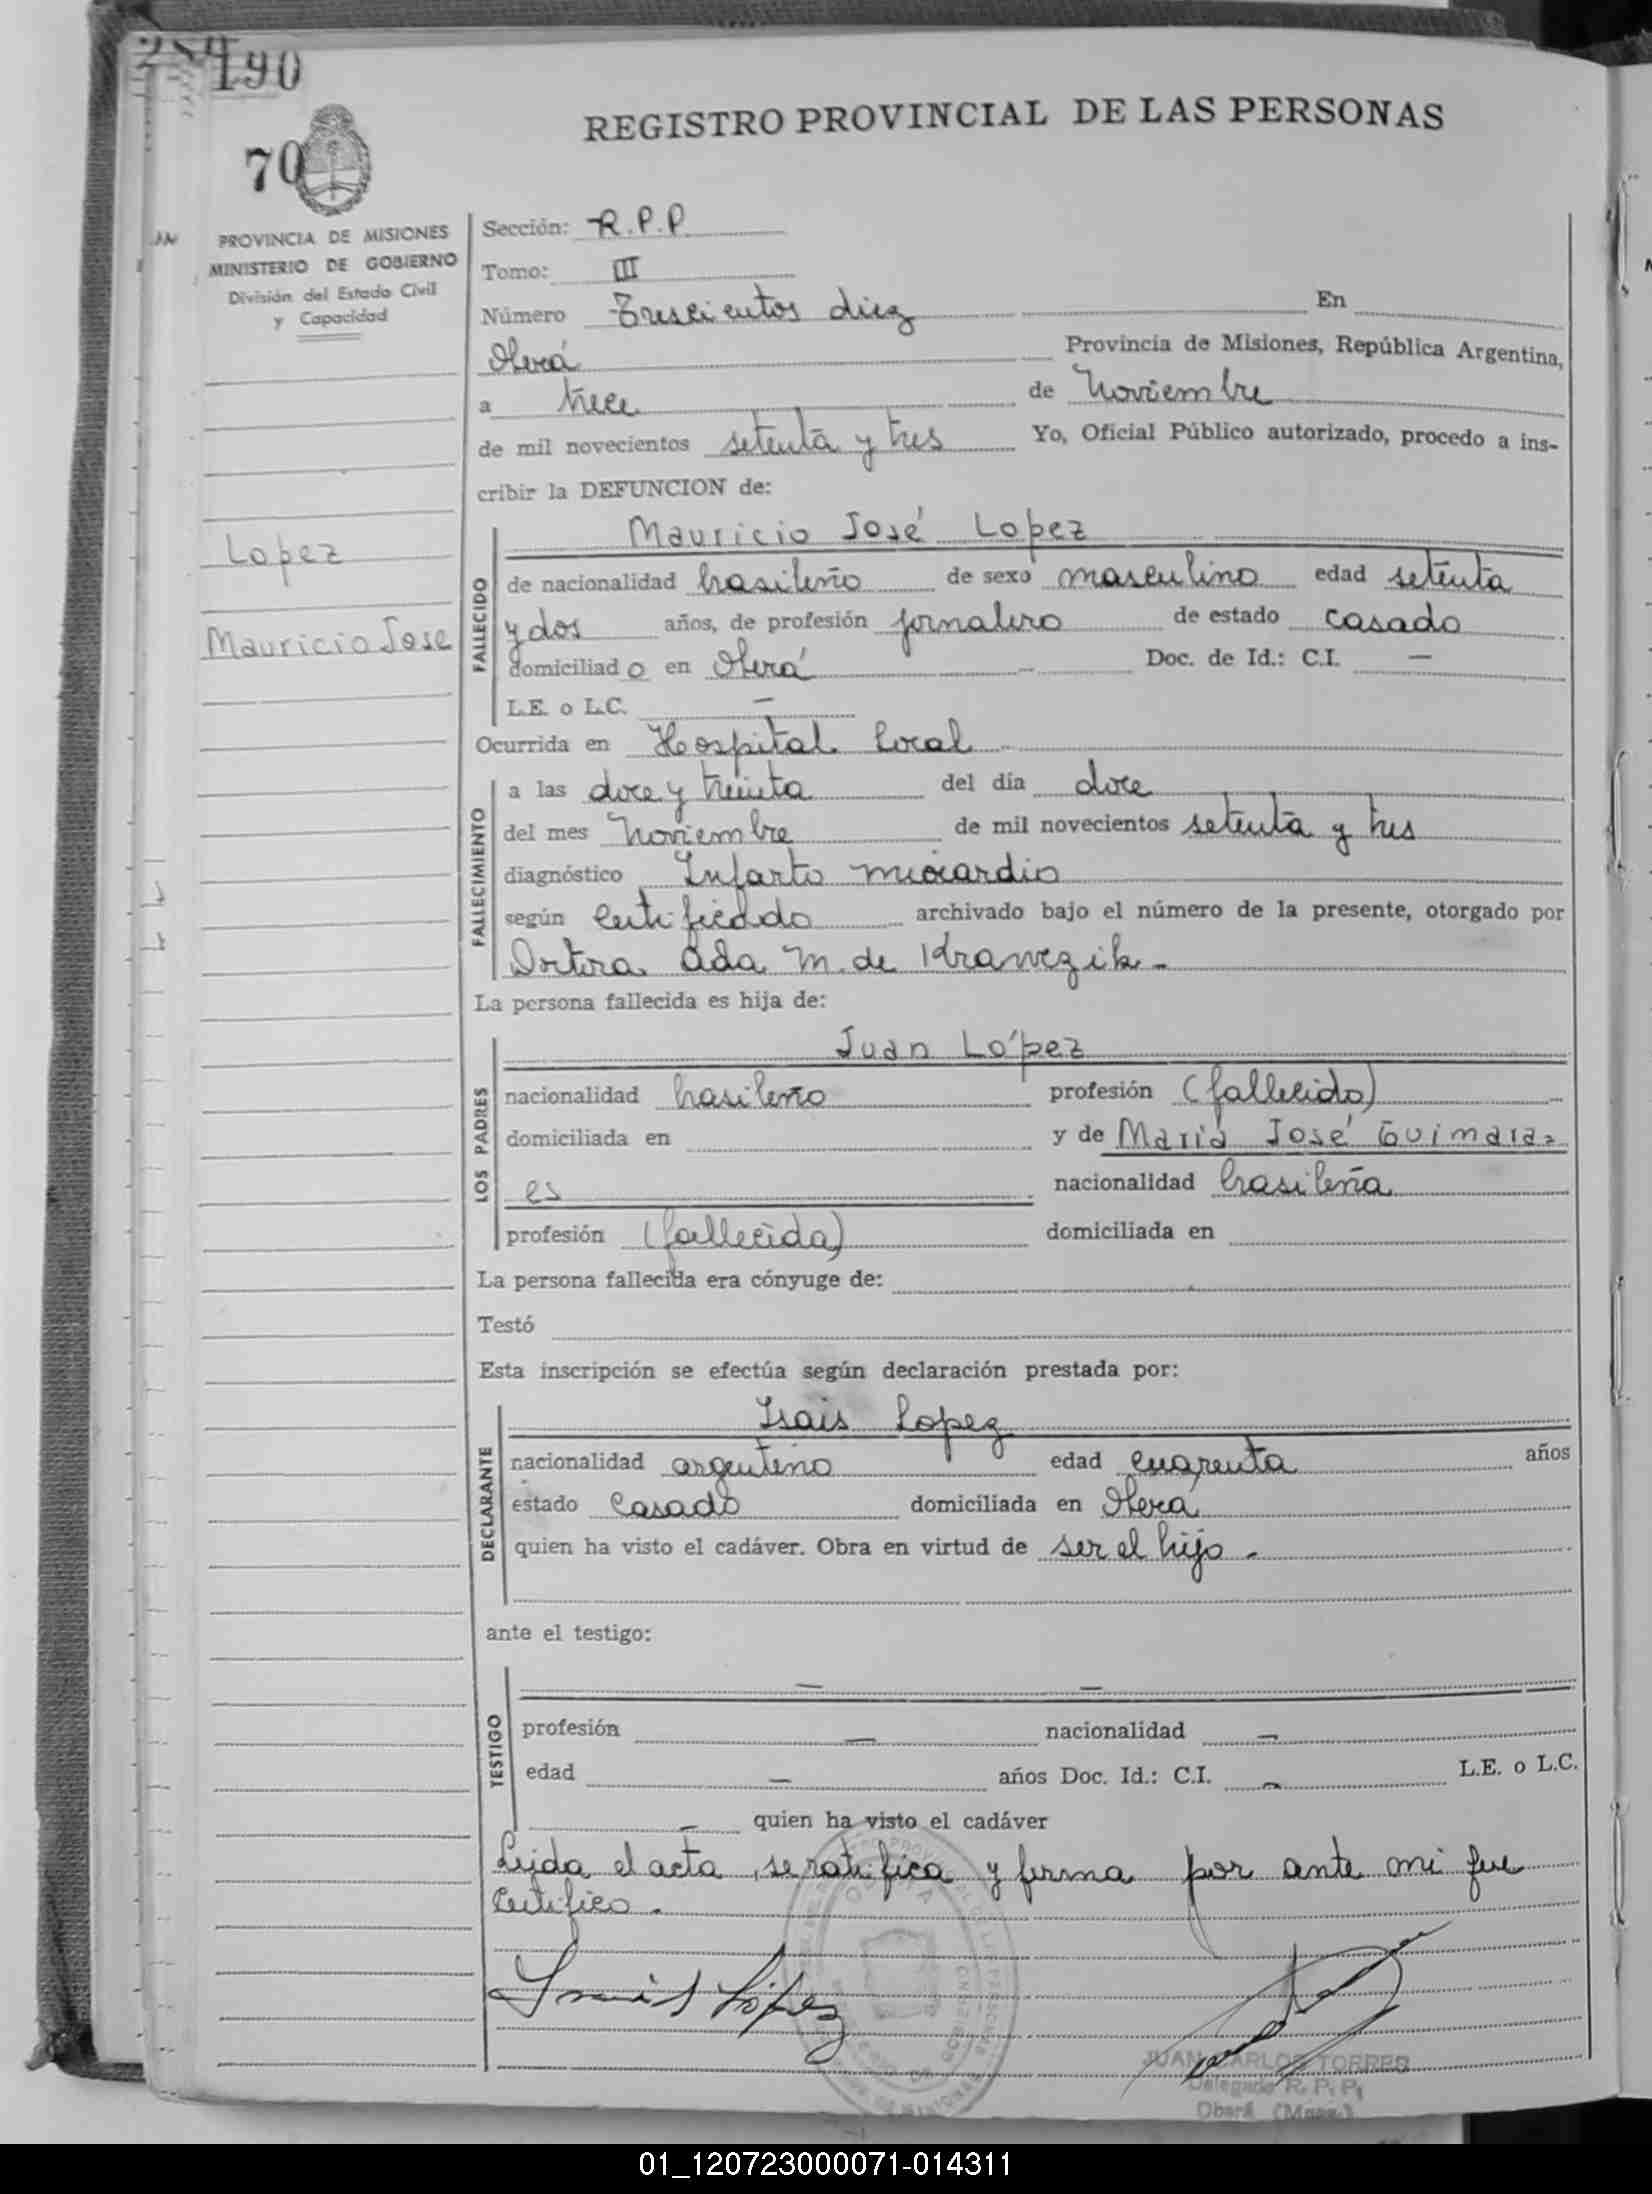 190
70
REGISTRO PROVINCIAL DE LAS PERSONAS
PROVINCIA DE MISIONES
MINISTERIO DE GOBIERNO
División del Estado Civil
y Capacidad
Lopez
Mauricio Jose
Sección: R.P.P.
Tomo: III
Número Trescientos diez En
Oberá Provincia de Misiones, República Argentina,
a trece de Noviembre
de mil novecientos setenta y tres Yo, Oficial Público autorizado, procedo a ins-
cribir la DEFUNCION de:
FALLECIDO
Mauricio José Lopez
de nacionalidad brasileño de sexo masculino edad setenta
y dos años, de profesión jornalero de estado casado
domiciliado en Oberá Doc. de Id.: C.I. —
L.E. o L.C. —
Ocurrida en Hospital local
FALLECIMIENTO
a las doce y treinta del día doce
del mes Noviembre de mil novecientos setenta y tres
diagnóstico Infarto miocardio
según Certificado archivado bajo el número de la presente, otorgado por
Doctora Ada M. de Krawczik -
La persona fallecida es hija de:
LOS PADRES
Juan López
nacionalidad brasileño profesión (fallecido)
domiciliada en y de María José Guimara=
es nacionalidad brasileña
profesión (fallecida) domiciliada en
La persona fallecida era cónyuge de:
Testó
Esta inscripción se efectúa según declaración prestada por:
DECLARANTE
Isais Lopez
nacionalidad argentino edad cuarenta años
estado Casado domiciliada en Oberá
quien ha visto el cadáver. Obra en virtud de ser el hijo -
ante el testigo:
TESTIGO
— —
profesión — nacionalidad —
edad — años Doc. Id.: C.I. — L.E. o L.C.
— quien ha visto el cadáver
Leida el acta, se ratifica y firma por ante mi que
Certifico.
Isais López
JUAN CARLOS TORRES
Delegado R. P. P.
Oberá (Mnes.)
01_120723000071-014311